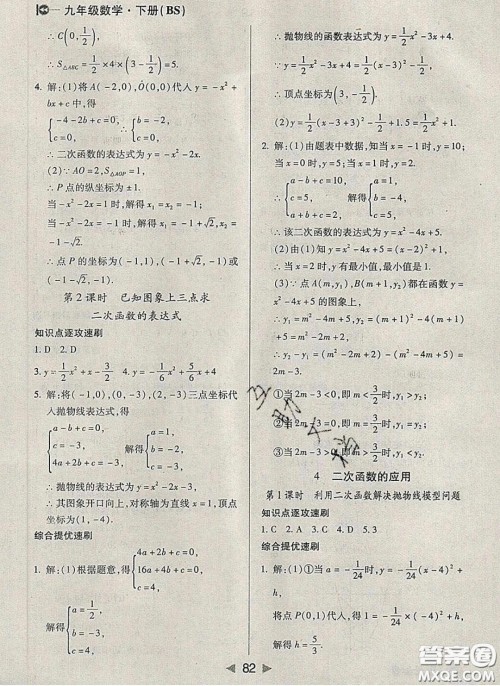 九年级数学·下册(BS)
∴C(0,1/2),
∴S△ABC=1/2×4×1/2=1.
4. 解:(1)将A(-2,0),O(0,0)代入y=-x²+
bx+c中,得
{-4-2b+c=0, c=0. ∴{b=-2, c=0.
∴二次函数的表达式为y=-x²-2x.
(2)∵AO=2,S△AOP=1,
∴P点的纵坐标为±1.
当-x²-2x=1时,解得x=-1,
当-x²-2x=-1时,解得x₁=-1+√2,x₂
=-1-√2,
∴点P的坐标为(-1,1),(-1+√2,-1)或
(-1-√2,-1).
第2课时 已知图象上三点求
二次函数的表达式
知识点逐攻速刷
1. D 2. D
3. y=1/2x²+x-3/2 4. y=-1/6x²+5/6x+4
5. 解:将(-1,0),(0,-3),(2,-3)三点坐标代
入抛物线表达式,得
{a-b+c=0, c=-3, 4a+2b+c=-3. 解得{a=1, b=-2, c=-3.
∴抛物线的表达式为y=x²-2x-3,
∴其图象开口向上,对称轴为直线x=1,顶点
坐标为(1,-4).
综合提优速刷
1. 解:(1)根据题意,得{4a+2b+c=0, 16a+4b+c=0, c=4,
解得{a=1/2, b=-3, c=4.
∴抛物线的函数表达式为y=1/2x²-3x+4.
∵y=1/2x²-3x+4=1/2(x-3)²-1/2,
∴顶点坐标为(3,-1/2).
(2)y=1/2(x-3+3)²-1/2+1.5=1/2x²+1.
2. 解:(1)由题表中数据,知当x=-1时,y=10;
当x=0时,y=5;当x=1时,y=2,
∴{a-b+c=10, c=5, a+b+c=2. 解得{a=1, b=-4, c=5.
∴该二次函数的表达式为y=x²-4x+5.
(2)由(1)知y=x²-4x+5=(x-2)²+1,
∴当x=2时,y有最小值,最小值为1.
(3)∵A(m,y₁),B(m+1,y₂)两点都在函数y=
x²-4x+5的图象上,
∴y₁=m²-4m+5,y₂=m²-2m+2,
∴y₂-y₁=(m²-2m+2)-(m²-4m+5)
=2m-3,
∴①当2m-3<0,即m<3/2时,y₁>y₂;
②当2m-3=0,即m=3/2时,y₁=y₂;
③当2m-3>0,即m>3/2时,y₁<y₂.
4 二次函数的应用
第1课时 利用二次函数解决抛物线模型问题
知识点逐攻速刷
1. C 2. A 3. C 4. D 5. 3
综合提优速刷
1. 解:(1)①当a=-1/24时,y=-1/24(x-4)²+
h,
将点P(0,1)代入,得-1/24×(-4)²+h=1,
解得h=5/3.
82
互助文档
答案圈
MXQE.COM